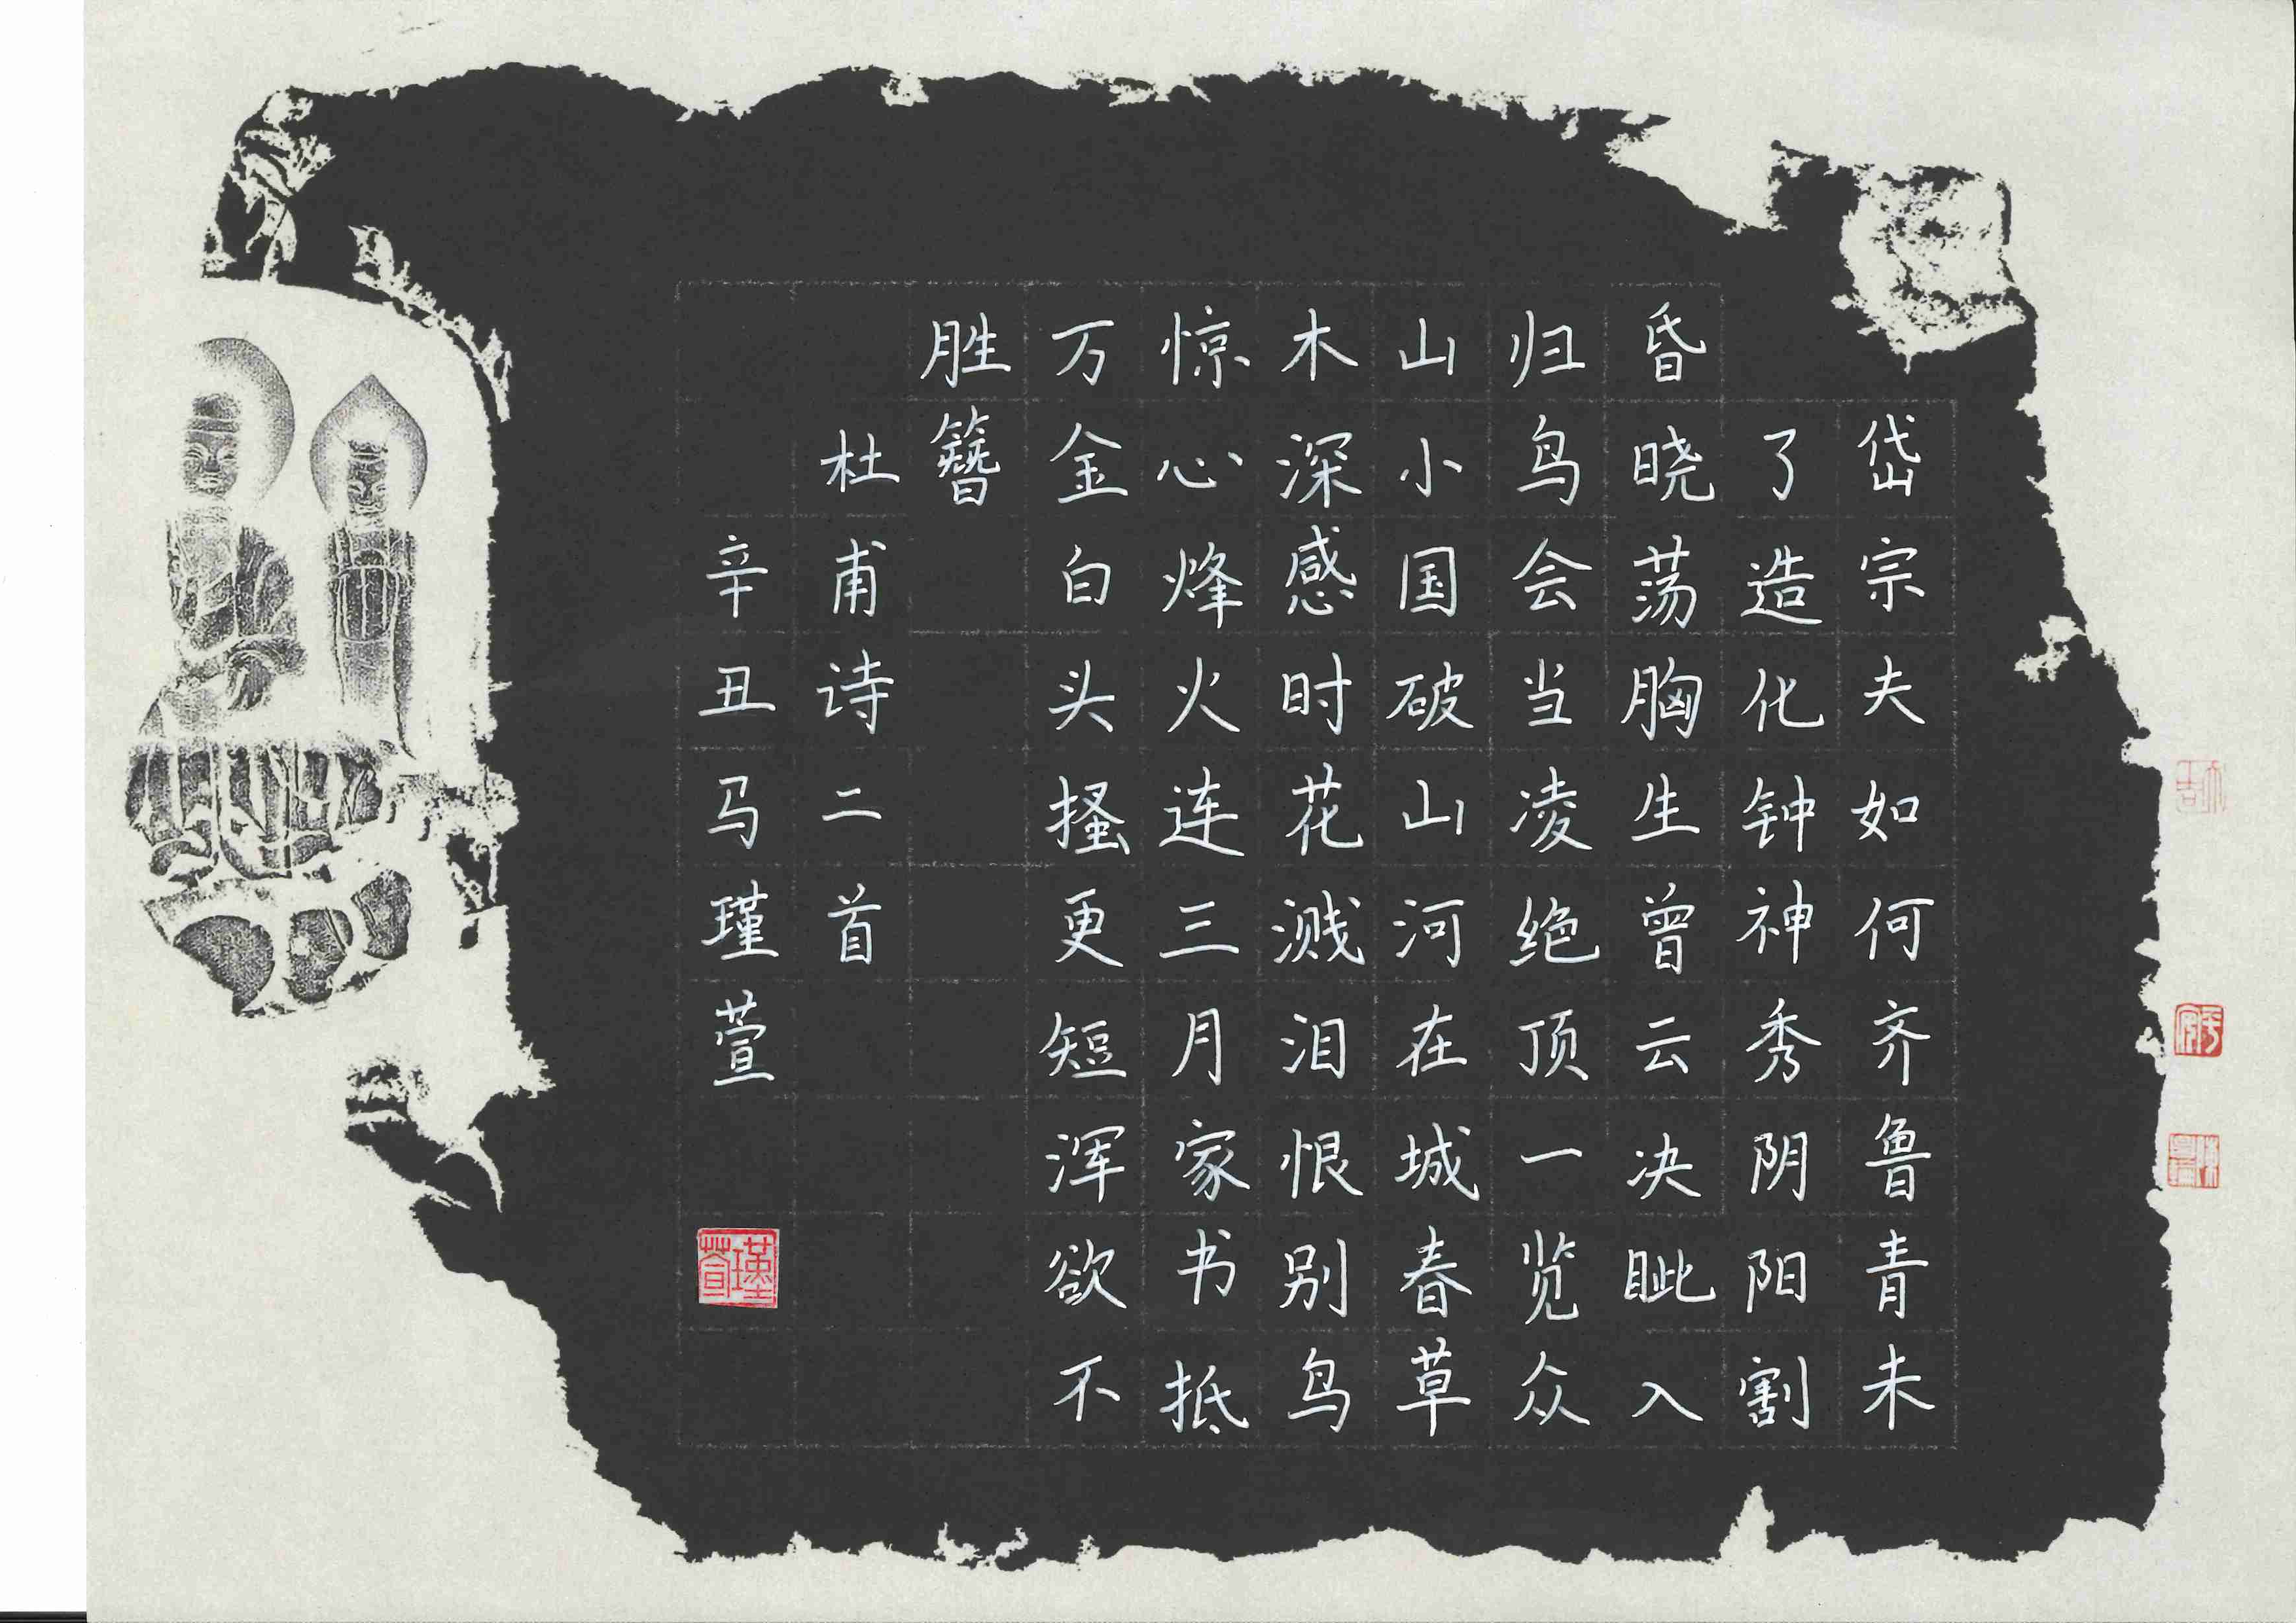 岱宗夫如何齐鲁青未
了造化钟神秀阴阳割
昏晓荡胸生曾云决眦入
归鸟会当凌绝顶一览众
山小国破山河在城春草
木深感时花溅泪恨别鸟
惊心烽火连三月家书抵
万金白头搔更短浑欲不
胜簪
杜甫诗二首
辛丑马瑾萱
瑾萱